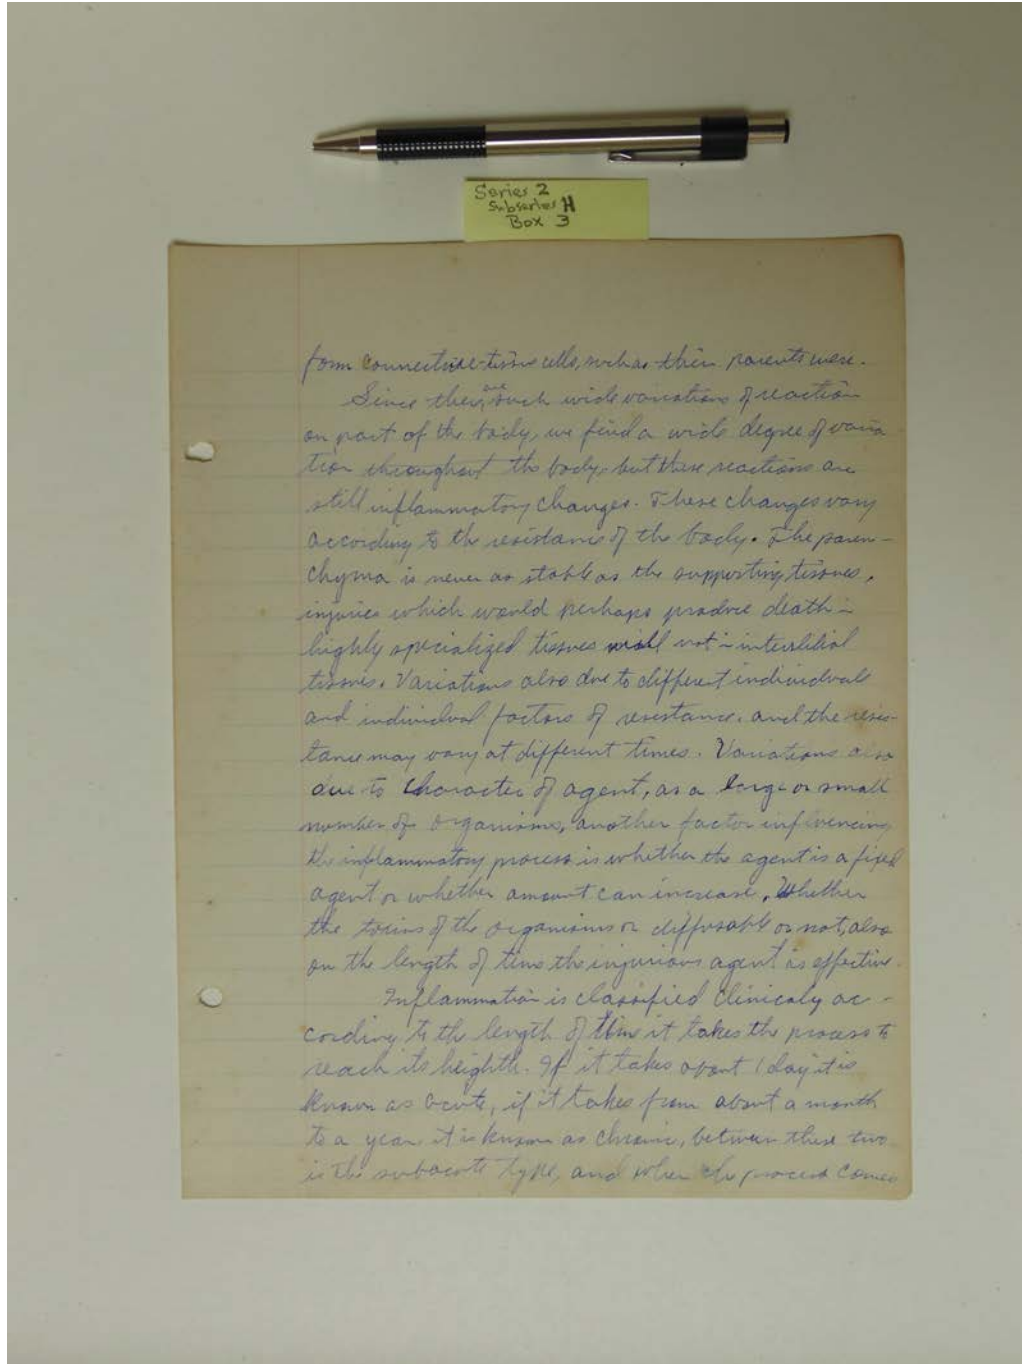 Series 2
Subseries H
Box 3
form connective-tissue cells, such as their parents were.
Since there are such wide variations of reaction
on part of the body, we find a wide degree of varia
tion throughout the body, but these reactions are
still inflammatory changes. These changes vary
according to the resistance of the body. The paren-
chyma is never as stable as the supporting tissues,
injuries which would perhaps produce death in
highly specialized tissues will not in interstitial
tissues. Variations also due to different individuals
and individual factors of resistance, and the resis-
tance may vary at different times. Variations also
due to character of agent, as a large or small
number of organisms, another factor influencing
the inflammatory process is whether the agent is a fixed
agent or whether amount can increase. Whether
the toxins of the organisms or diffusable or not, also
on the length of time the injurious agent is effective.
Inflammation is classified clinicaly ac-
cording to the length of time it takes the process to
reach its heighth. If it takes about 1 day it is
known as acute, if it takes from about a month
to a year it is known as chronic, between these two
is the subacute type, and when the process comes